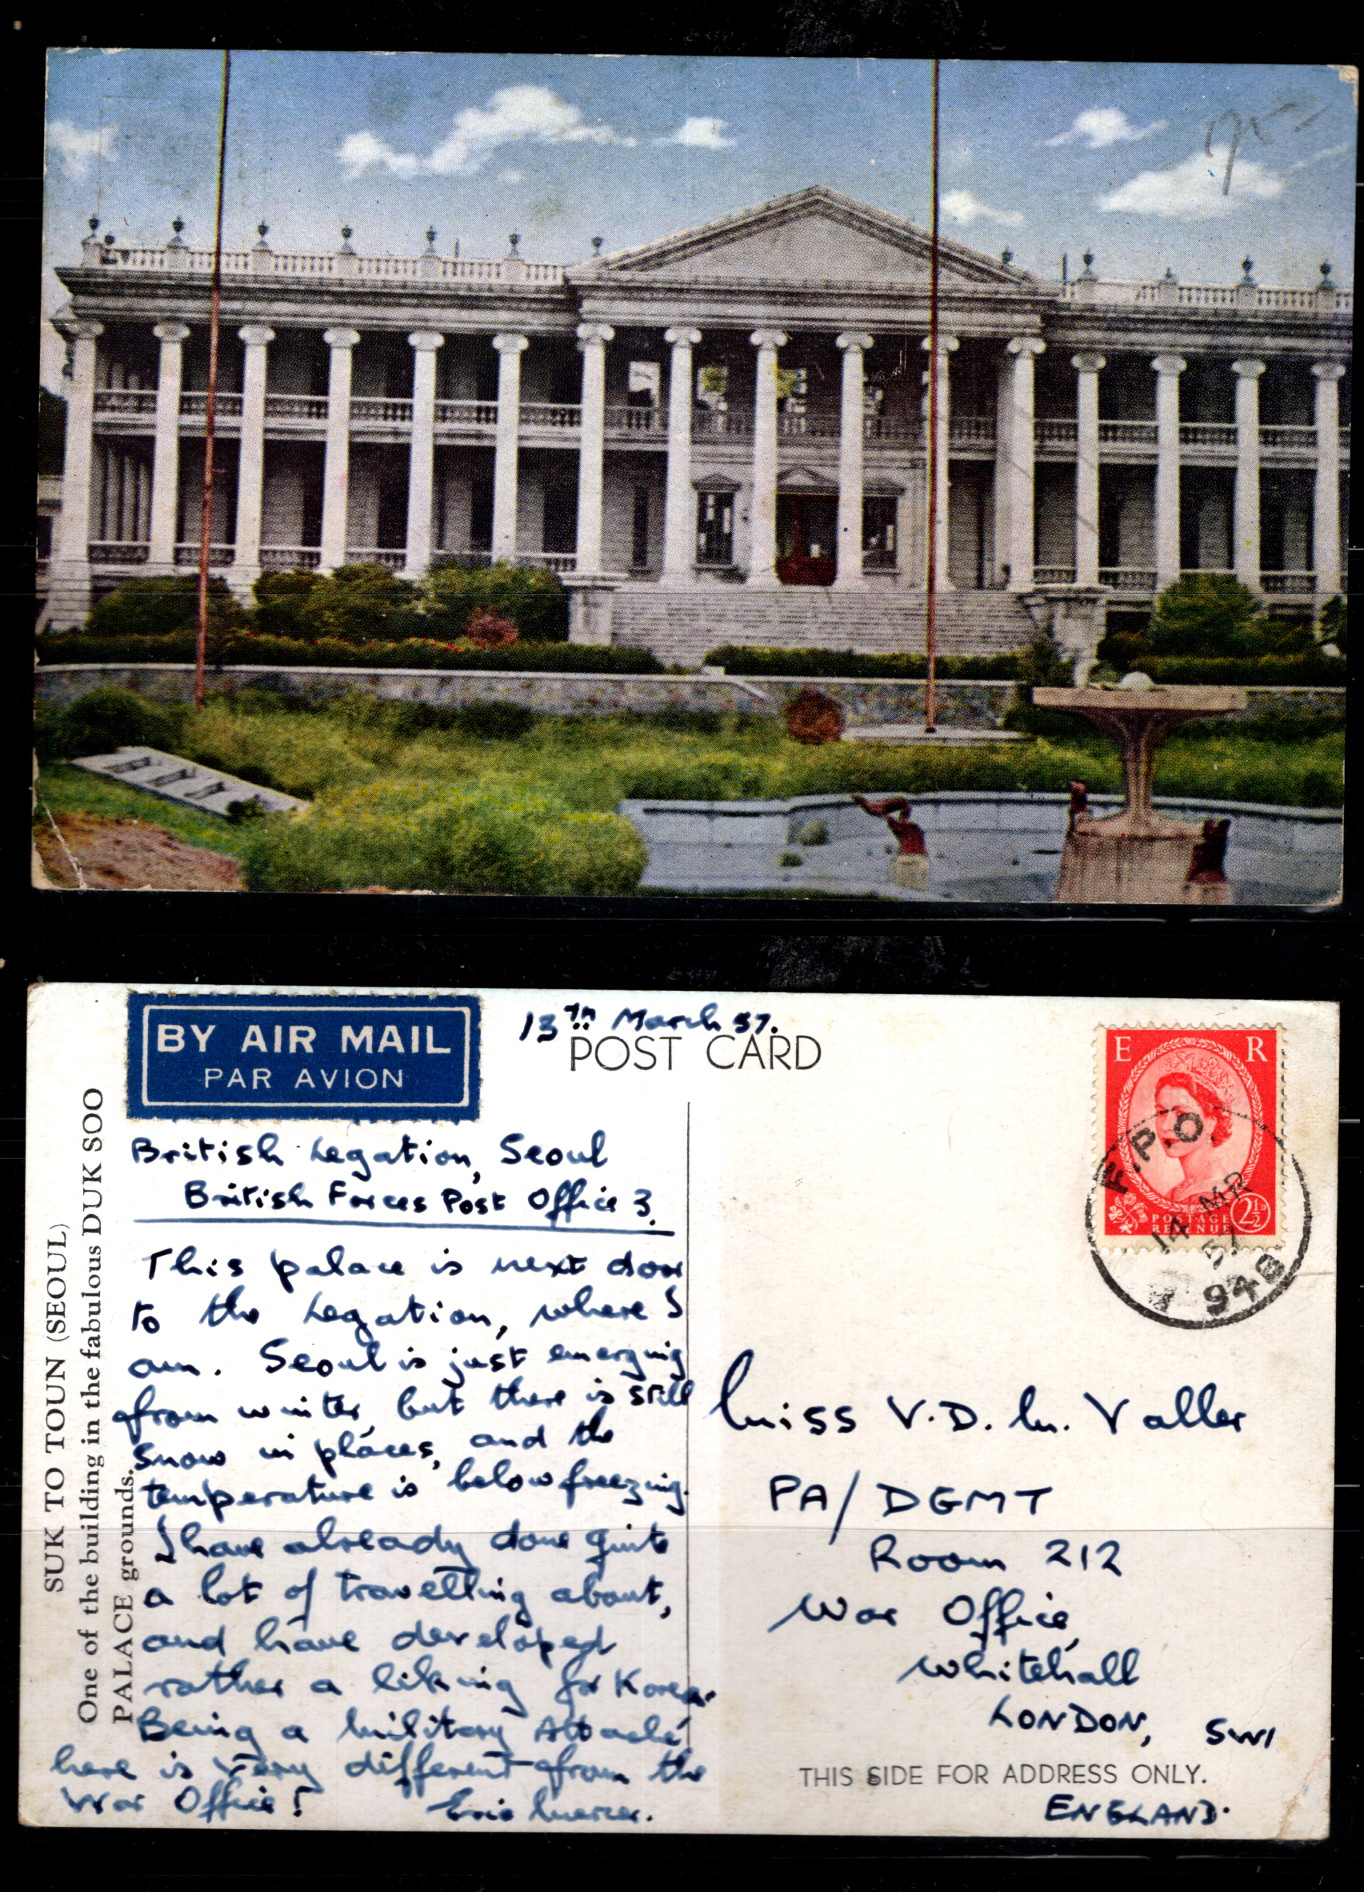 BY AIR MAIL
PAR AVION
13TH March 57.
POST CARD
E R
POSTAGE
REVENUE
2½D
F.P.O.
14 MR
57
948
SUK TO TOUN (SEOUL)
One of the building in the fabulous DUK SOO
PALACE grounds.
British Legation, Seoul
British Forces Post Office 3.
This palace is next door
to the Legation, where I
am. Seoul is just emerging
from winter, but there is still
snow in places, and the
temperature is below freezing.
I have already done quite
a lot of travelling about,
and have developed
rather a liking for Korea.
Being a Military Attaché
here is very different from the
War Office!
Eric Mercer.
Miss V.D.M. Valler
PA/DGMT
Room 212
War Office,
Whitehall
LONDON, SW1
THIS SIDE FOR ADDRESS ONLY.
ENGLAND.